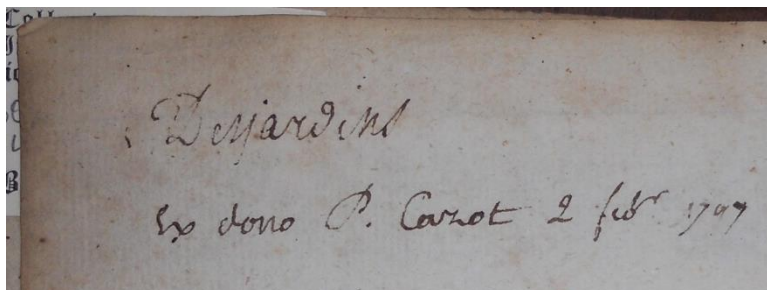 Desjardins
Ex dono P. Cazot 2 febr 1797